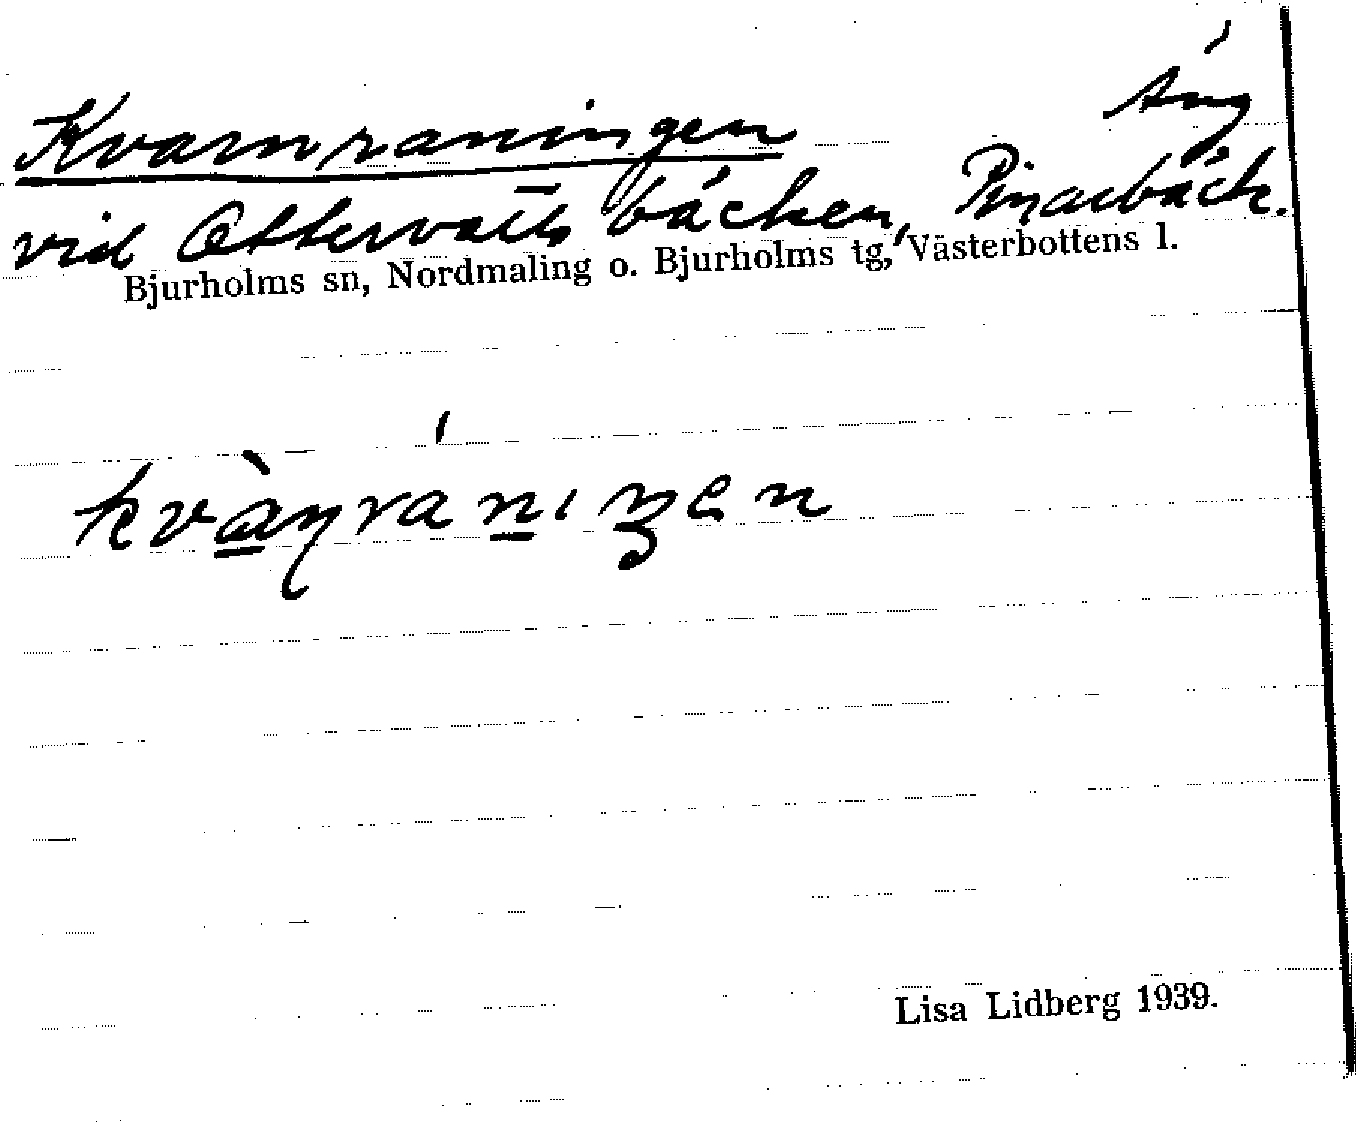 Äng
Kvarnraningen
vid Ottervattsbäcken, Pynarbäck.
Bjurholms sn, Nordmaling o. Bjurholms tg, Västerbottens l.
Lisa Lidberg 1939.